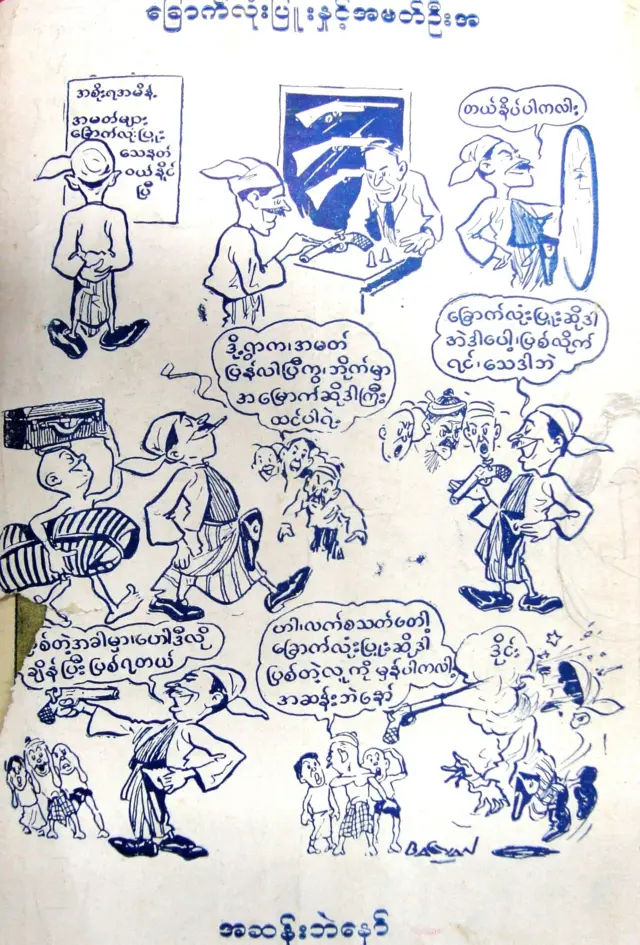 ခြောက်လုံးပြူးနှင့်အမတ်ဦးအ
အစိုးရအမိန့်
အမတ်များ
ခြောက်လုံးပြူး
သေနတ်
ဝယ်နိုင်
ပြီ
တယ်နိပ်ပါကလါး
ဒို့ရွာက၊အမတ်
ပြန်လါပြီကွ၊ဘိုက်မှာ
အမြောက်ဆိုဒါကြီး
ထင်ပါရဲ့
ခြောက်လုံးပြူးဆိုဒါ
အဲဒါပေါ့၊ပြစ်လိုက်
ရင်၊သေဒါဘဲ
ပြစ်တဲ့အခါမှာ၊ဟောဒီလို
ချိန်ပြီးပြစ်ရတယ်
ဟါ၊လက်စသက်တော့
ခြောက်လုံးပြူးဆိုဒါ
ပြစ်တဲ့လူကိုမှန်ပါကလါး
အဆန်းဘဲနော်
ဒိုင်း
အဆန်းဘဲနော်